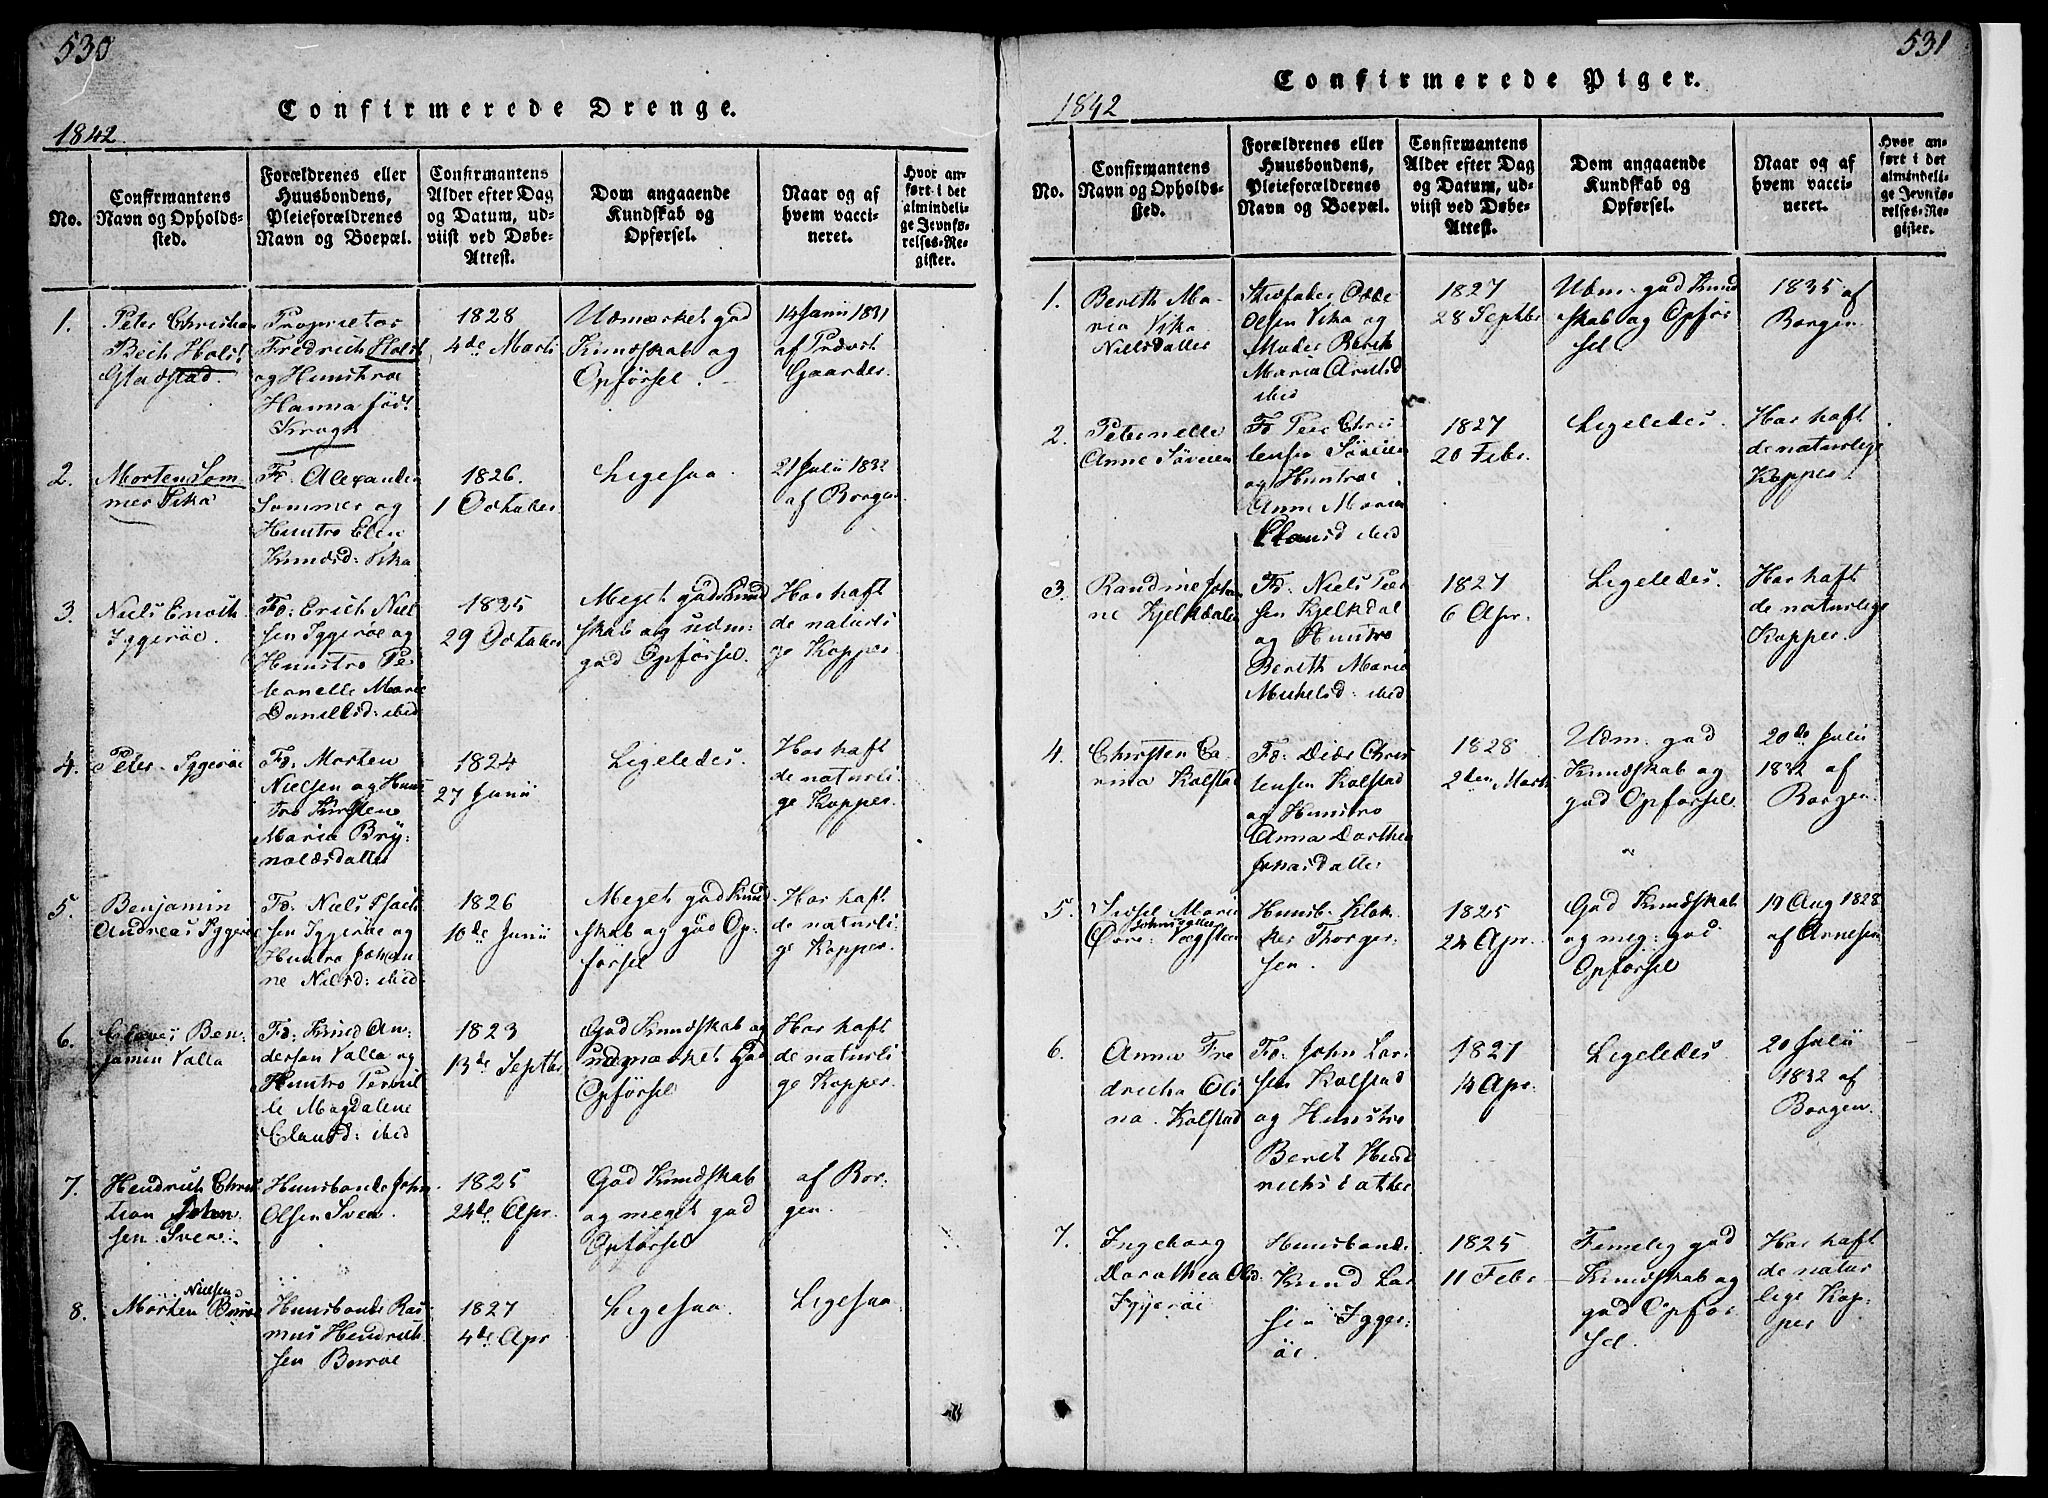 530
Confirmerede Drenge.
1842.
No.
Confirmantens
Navn og Opholds-
sted.
Forældrenes eller
Huusbondens,
Pleieforældrenes
Navn og Boepæl.
Confirmantens
Alder efter Dag
og Datum, ud-
viist ved Døbe-
Attest.
Dom angaaende
Kundskab og
Opførsel.
Naar og af
hvem vacci-
neret.
Hvor an-
ført i det
almindeli-
ge Jevnfø-
relses-Re-
gister.
1.
Peter Christian
Bech Holst
Gladstad.
Proprietær
Fredrich Holst
og Huustroe
Hanna fød:
Krogh
1828
4de Marti
Udmærket god
Kundskab og
Opførsel.
14 Junii 1831
af Provst
Gaarder.
2.
Morten Som
mer Vika
Fd. Alexander
Sommer og
Huustro Elen
Knudsd: Vika
1826.
1 October
Ligesaa.
21 Julii 1832
af Borgen.
3.
Niels Enoch
Iggerøe.
Fd: Erich Niel
sen Iggerøe og
Huustro Pe
Marie
Danielsd: ibid
1825
29 October
Meget god Kund
skab og udm:
god Opførsel.
Har haft
de naturli
ge Kopper.
4.
Peter Iggerøe
Fd: Morten
Nielsen og Huus
tro Kirsten
Maria Bry:
noldsdatter
1824
27 Junii
Ligeledes.
Har haft
de naturli
ge Kopper.
5.
Benjamin
Andreas Iggerøe
Fd. Niels
sen Iggerøe og
Huustro Johan
ne Nielsd: ibid.
1826
10de Junii
Meget god Kund
skab og god Op-
førsel
Har haft
de naturli
ge Kopper.
6.
Ben
jamin Valla
Fd: Knud An:
dersen Valla og
Huustro
le Magdalene
Clausd: ibid
1823
13de Septbr
God Kundskab og
udmærket God
Opførsel
Har haft
de naturli
ge Kopper.
7.
Hendrich Chris
tian Johan
sen Sven
Huusbonde John
Olsen Sven.
1825
24de Apr.
God Kundskab
og meget god
Opførsel
af Bor-
gen.
8.
Nielsen
Morten Burøe
Huusbonde Ras
mus Hendrich
sen Burøe
1827
4de Apr
Ligesaa.
Ligesaa.
531
Confirmerede Piger.
1842
No.
Confirmantens
Navn og Opholds-
sted.
Forældrenes eller
Huusbondens,
Pleieforældrenes
Navn og Boepæl.
Confirmantens
Alder efter Dag
og Datum, ud-
viist ved Døbe-
Attest.
Dom angaaende
Kundskab og
Opførsel.
Naar og af
hvem vacci-
neret.
Hvor an-
ført i det
almindeli-
ge Jevnfø-
relses-Re-
gister.
1.
Bereth Ma-
ria Vika
Nielsdatter
Stedfader Odde
Olsen Vika og
Moder Bereth
Maria
ibid
1827
28 Septbr
Udm: god Kund
skab og Opfør
sel
1835 af
Borgen.
2.
Peternelle
Anne Søveien
Fd Peer Chris
tensen Søveien
og Huustroe
Anne Maria
Clausd ibid
1827
20 Febr.
Ligeledes.
Har haft
de naturlige
Kopper.
3.
Randine Johan
ne Kjelkdalen
Fd. Niels Peer
sen Kjelkdal
og Huustro
Bereth Maria
Michelsd: ibid
1827
6 Apr.
Ligeledes.
Har haft
de naturlige
Kopper.
4.
Chirsten Ca-
rina Kolstad
Fd: Didr. Chris
tensen Kolstad
og Huustro
Anna Dorthea
Jonasdatter
1828
2den Marti
Udm: god
Kundskab og
god Opførsel
20de Julii
1832 af
Borgen.
5.
Sidsel Marie
Johnsdatter
Øvre: Vaagsteen
Huusb. Klok-
ker Thorger-
sen.
1825
24 Apr.
God Kundskab
og meg: god
Opførsel
19 Aug 1828
af Arnesen
6.
Anna Fre
dricha Oli
na. Kolstad
Fd: John Lar
sen Kolstad
og Huustro
Beret Hend
richsdatter
1827
14 Apr.
Ligeledes
20 Julii
1832 af
Borgen.
7.
Ingeborg
Dorothea Olsd.
Iggerøe
Huusbond.
Knud Lar
sen Igger:
øe.
1825
11 Febr
Temelig god
Kundskab og
god Opfør
sel.
Har haft
de natur
lige Kop:
per